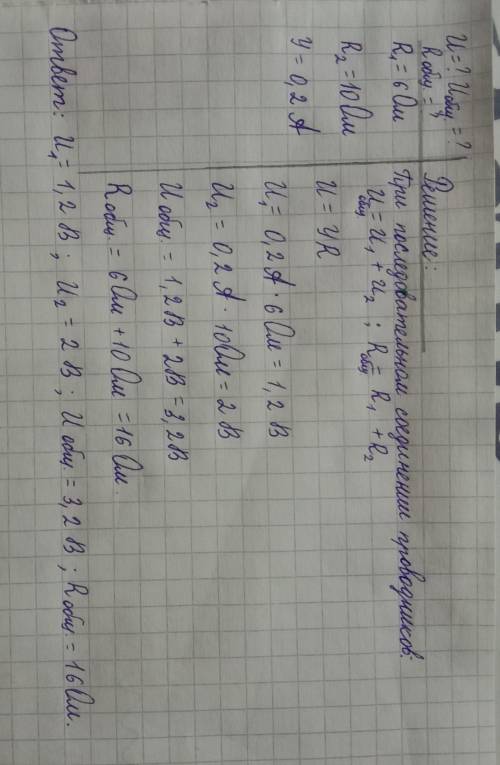 U = ? Uобщ = ?
Rобщ = ?
R₁ = 6 Ом
R₂ = 10 Ом
У = 0,2 А
Решение:
При последовательном соединении проводников:
Uобщ = U₁ + U₂ ; Rобщ = R₁ + R₂
U = УR
U₁ = 0,2 А · 6 Ом = 1,2 В
U₂ = 0,2 А · 10 Ом = 2 В
Uобщ. = 1,2 В + 2 В = 3,2 В
Rобщ. = 6 Ом + 10 Ом = 16 Ом.
Ответ: U₁ = 1,2 В ; U₂ = 2 В ; Uобщ = 3,2 В ; Rобщ. = 16 Ом.